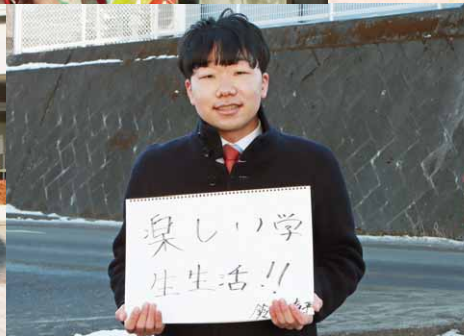 楽しい学
生生活!!